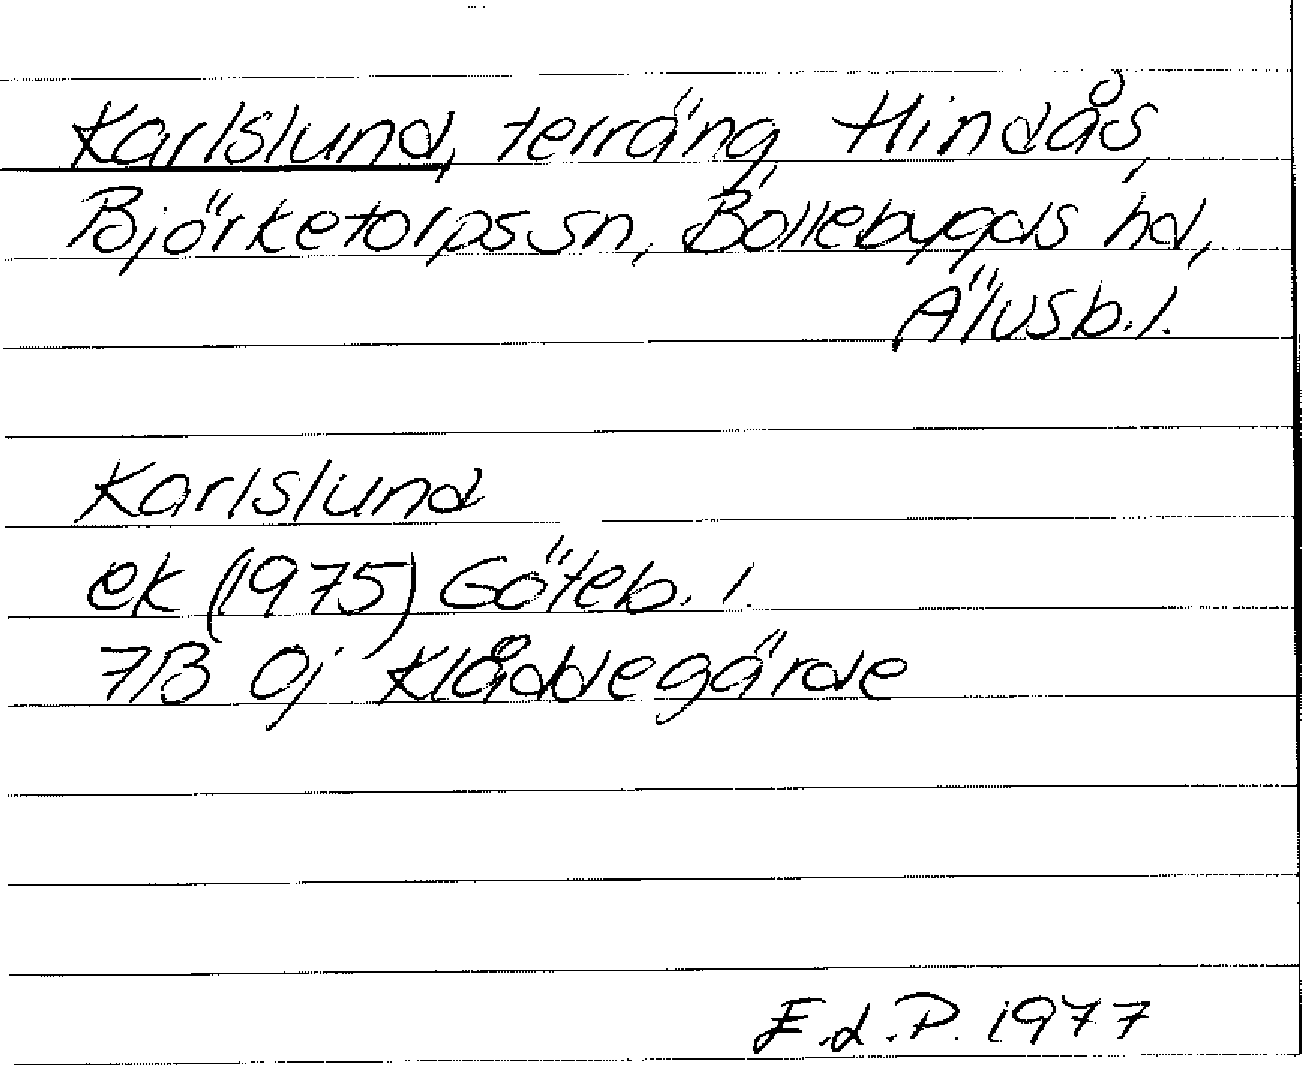 Karlslund, terräng, Hindås,
Björketorps sn, Bollebygds hd,
Älvsb. l.
Karlslund
ek (1975) Göteb. l.
7B 0j Klåddegärde
E.d.P. 1977